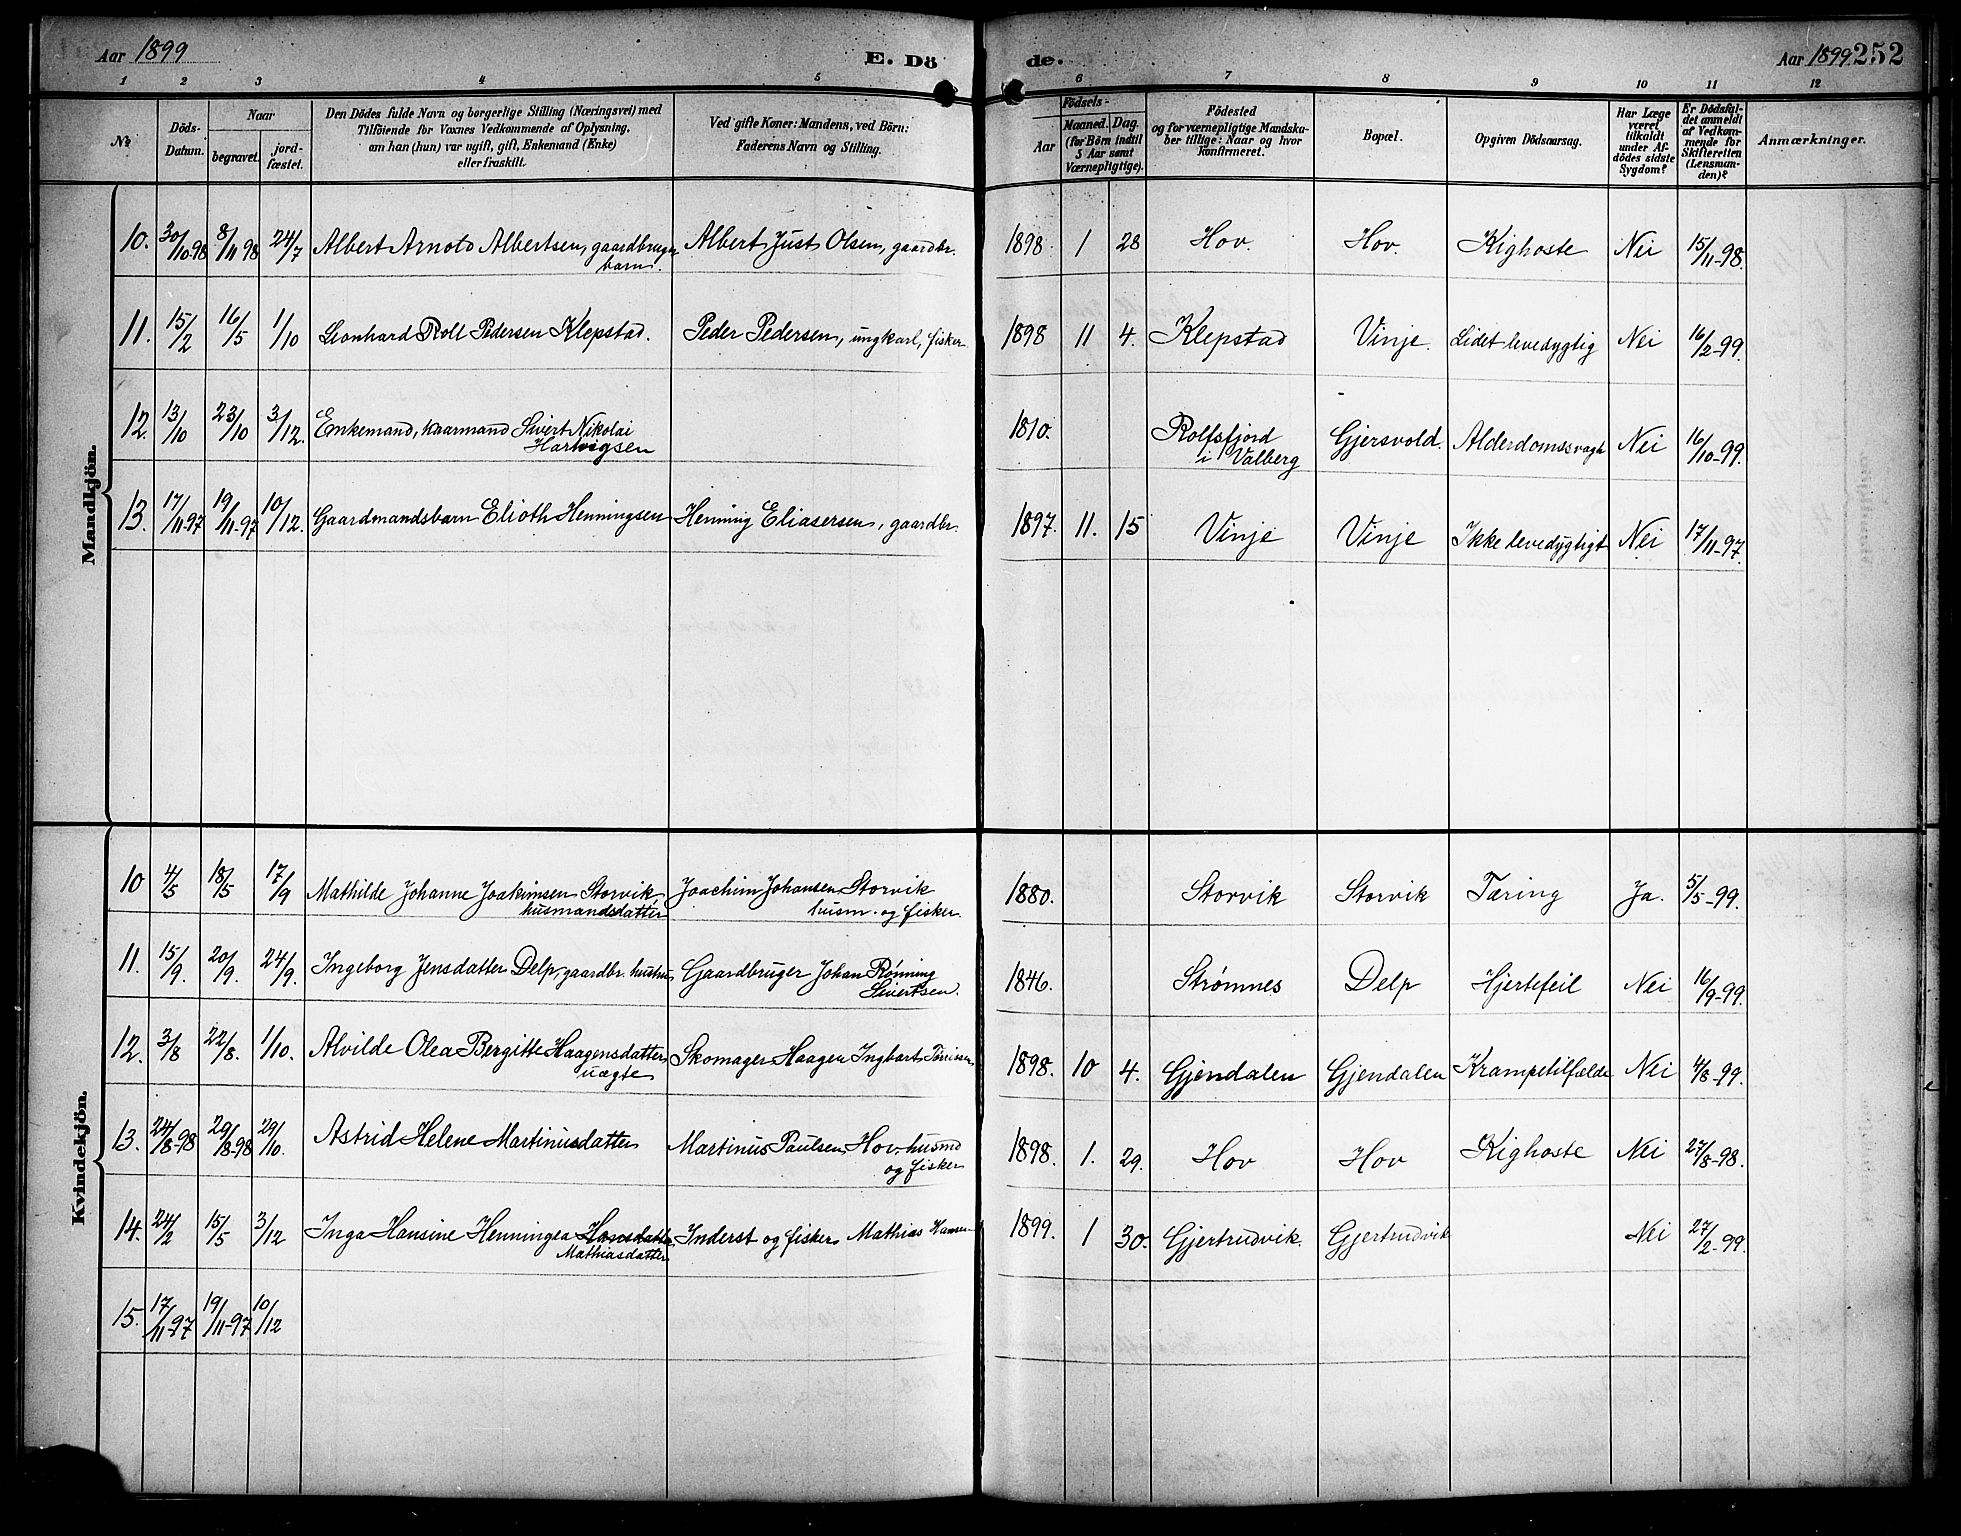 Aar 1899
E. Dö
de.
Aar 1899. 252
1 2 3 4 5 6 7 8 9 10 11 12
No
Döds-
Datum.
Naar
begravet.
jord-
fæstet.
Den Dödes fulde Navn og borgerlige Stilling (Næringsvei) med
Tilföiende for Voxnes Vedkommende af Oplysning,
om han (hun) var ugift, gift, Enkemand (Enke)
eller fraskilt.
Ved gifte Koner: Mandens, ved Börn:
Faderens Navn og Stilling.
Födsels-
Aar
Maaned. Dag.
(for Börn indtil
5 Aar samt
Værnepligtige).
Födested
og for værnepligtige Mandska-
ber tillige: Naar og hvor
konfirmeret.
Bopæl.
Opgiven Dödsaarsag.
Har Læge
været
tilkaldt
under Af-
dödes sidste
Sygdom?
Er Dödsfal-
det anmeldt
af Vedkom-
mende for
Skifteretten
(Lensman-
den)?
Anmærkninger.
Mandkjön.
10. 30/10-98 8/11 98 24/7 Albert Arnold Albertsen, gaardbruger Albert Just Olsen, gaardbr. 1898 1 28 Hov. Hov. Kighoste Nei 15/11-98.
barn.
11. 15/2 16/5 1/10 Leonhard Rolt Pedersen Klepstad. Peder Pedersen, ungkarl, fisker 1898 11 4. Klepstad Vinje. Lidet levedygtig Nei 16/2-99.
12. 13/10 23/10 3/12. Enkemand, kaarmand Sivert Nikolai 1810. Rolfsfjord Gjersvold. Alderdomssvagh Nei 16/10-99.
Hartvigsen i Valberg
13. 17/11-97 19/11-97 10/12. Gaardmandsbarn Elioth Henningsen Henning Eliasersen, gaardbr. 1897. 11. 15 Vinje Vinje Ikke levedygtigt Nei 17/11-97.
Kvindekjön.
10 4/5 18/5 17/9 Mathilde Johanne Joakimsen Storvik, Joachim Johansen Storvik 1880. Storvik Storvik Tæring Ja. 5/5-99.
husmandsdatter husm. og fisker.
11. 15/9. 20/9. 24/9. Ingeborg Jensdatter Delp, gaardbr. hustru Gaardbruger Johan Rønning 1846. Strømnes Delp Hjertefeil Nei 16/9-99.
Sivertsen.
12. 3/8 22/8. 1/10. Alvilde Olea Bergitte Haagensdatter Skomager Haagen Ingbart Tørrissen 1898. 10 4. Gjendalen Gjendalen Krampetilfælde Nei 4/8-99.
uægte
13. 24/8-98 29/8-98 29/10. Astrid Helene Martinusdatter Martinus Paulsen Hov, husmd 1898. 1. 29. Hov Hov Kighoste Nei 27/8-98.
og fisker
14. 24/2 15/5 3/12 Inga Hansine Henningea Hansdatter Inderst og fisker Mathias Hansen 1899. 1 30. Gjertrudvik. Gjertrudvik Nei 27/2-99.
Mathiasdatter
15. 17/11-97 19/11-97 10/12